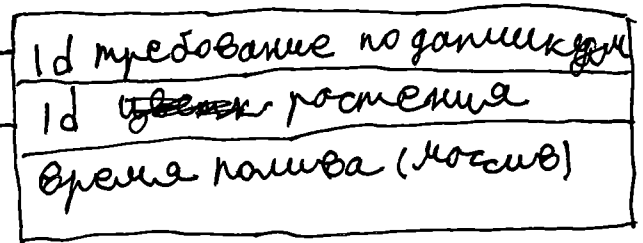 Id требование по датчикам
Id растения
время полива (массив)